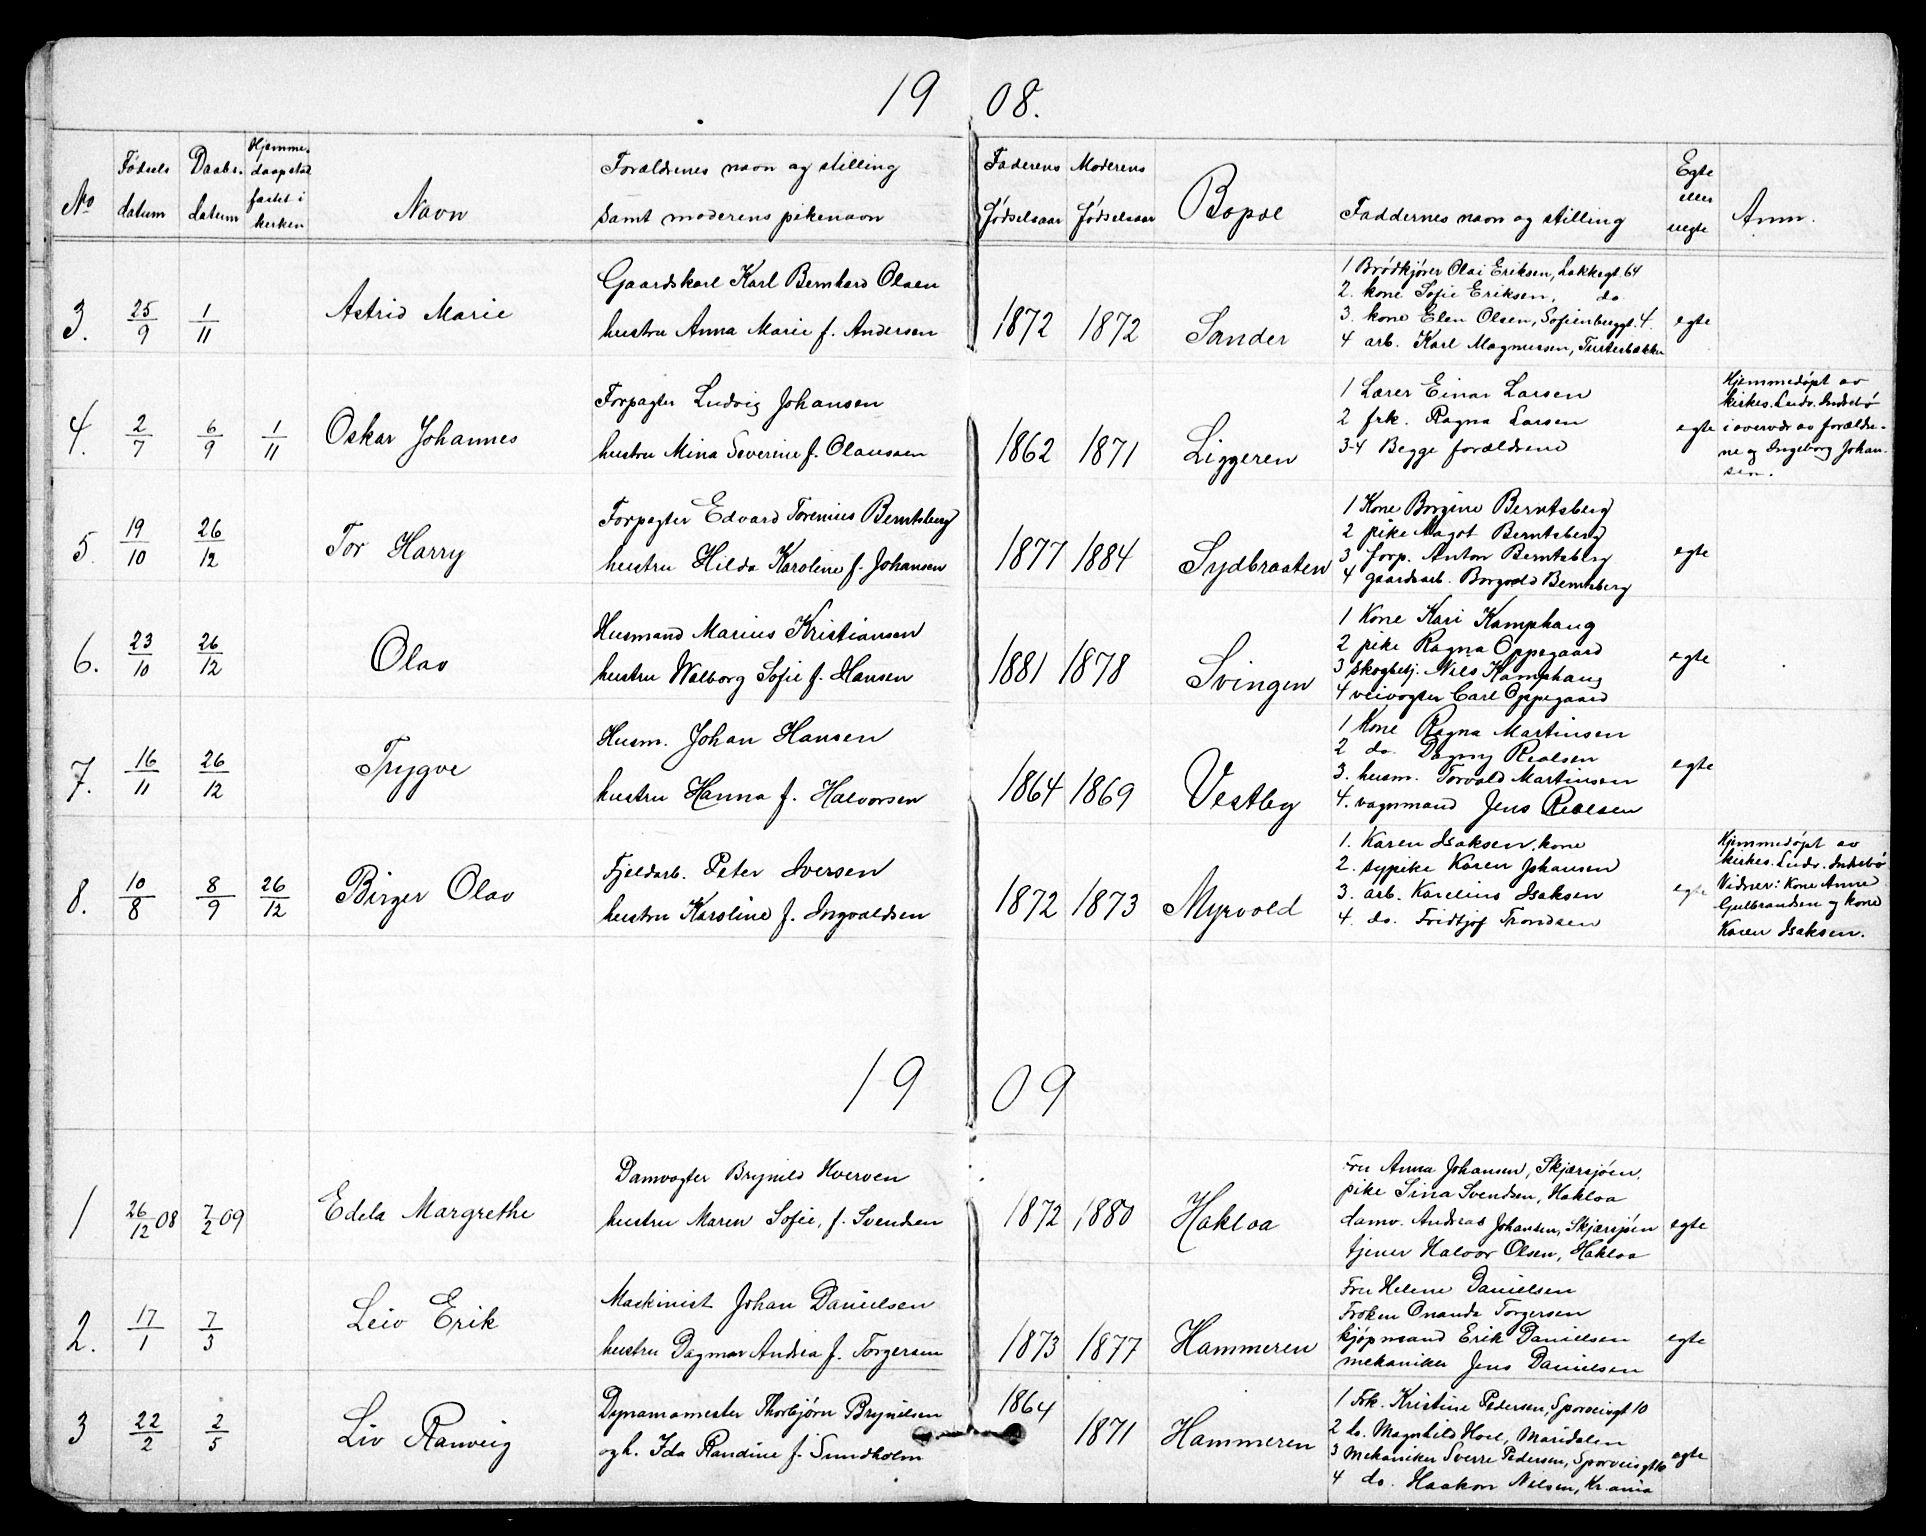 19 08.
No
Fødsels datum
Daabs- datum
Hjemme- daap stad- fæstet i kirken
Navn
Forældrenes navn og stilling
samt moderens pikenavn
Faderens Fødselsaar
Moderens Fødselsaar
Bopæl
Faddernes navn og stilling
Egte eller uegte
Anm.
3. 25/9 1/11 Astrid Marie
Gaardskarl Karl Bernhard Olsen
hustru Anna Marie f. Andersen
1872 1872 Sander
1 Brødkjører Olai Eriksen, Lakkegt. 64
2. kone Sofie Eriksen, do.
3. kone Elen Olsen, Sofienberggt. 4.
4 arb. Karl Magnussen,
egte
4. 2/7 6/9 1/11 Oskar Johannes
Forpagter Ludvig Johansen
hustru Mina Severine f. Olaussen
1862 1871 Liggeren
1 Lærer Einar Larsen
2 frk. Ragna Larsen
3-4 Begge forældrene
egte
Hjemmedøpt av
kirkes. Ludv. Indsebø
i overvær av forældre-
ne og Ingeborg Johan-
sen.
5. 19/10 26/12 Tor Harry
Forpagter Edvard Torenius Berntsberg
hustru Hilda Karoline f. Johansen
1877 1884 Sydbraaten
1 Kone Borgine Berntsberg
2 pike Magot Berntsberg
3 forp. Anton Berntsberg
4 gaardsarb. Borgvald Berntsberg
egte
6. 23/10 26/12 Olav
Husmand Marius Kristiansen
hustru Walborg Sofie f. Hansen
1881 1878 Svingen
1 Kone Kari Kamphaug
2 pike Ragna Oppegaard
3 skogbetj. Nils Kamphaug
4 veivogter Carl Oppegaard
egte
7. 16/11 26/12 Trygve
Husm. Johan Hansen
hustru Hanna f. Halvorsen
1864 1869 Vestby
1 Kone Ragna Martinsen
2 do. Dagny Realsen
3. husm. Torvald Martinsen
4. vognmand Jens Realsen
egte
8. 10/8 8/9 26/12 Birger Olav
Fjeldarb. Peter Iversen
hustru Karoline f. Ingvaldsen
1872 1873 Myrvold
1. Karen Isaksen, kone
2. sypike Karen Johansen
3. arb. Karelius Isaksen
4. do. Fridtjof Trondsen
egte
Hjemmedøpt av
kirkes. Ludv. Indsebø
Vidner: Kone Anne
Gulbrandsen og kone
Karen Isaksen.
19 09
1 26/12 08 7/2 09 Edela Margrethe
Damvogter Brynild Kverven
hustru Maren Sofie, f. Svendsen
1872 1880 Hakloa
Fru Anna Johansen, Skjærsjøen,
pike Sina Svendsen, Hakloa
damv. Andreas Johansen, Skjærsjøen
tjener Halvor Olsen, Hakloa
egte
2. 17/1 7/3 Leiv Erik
Maskinist Johan Danielsen
hustru Dagmar Andrea f. Torgersen
1873 1877 Hammeren
Fru Helene Danielsen
Frøken Onanda Torgersen
kjøpmand Erik Danielsen
mekaniker Jens Danielsen
egte
3 22/2 2/5 Liv Ranveig
Dynamomester Thorbjørn Brynilsen
og h. Ida Randine f. Sundholm
1864 1871 Hammeren
1 Frk. Kristine Pedersen, Sporveisgt 10
2 do. Magnhild Hoel, Maridalen
3 Mekaniker Sverre Pedersen, Sporveisgt 10
4 do. Haakon Nilsen, Kr.ania
egte